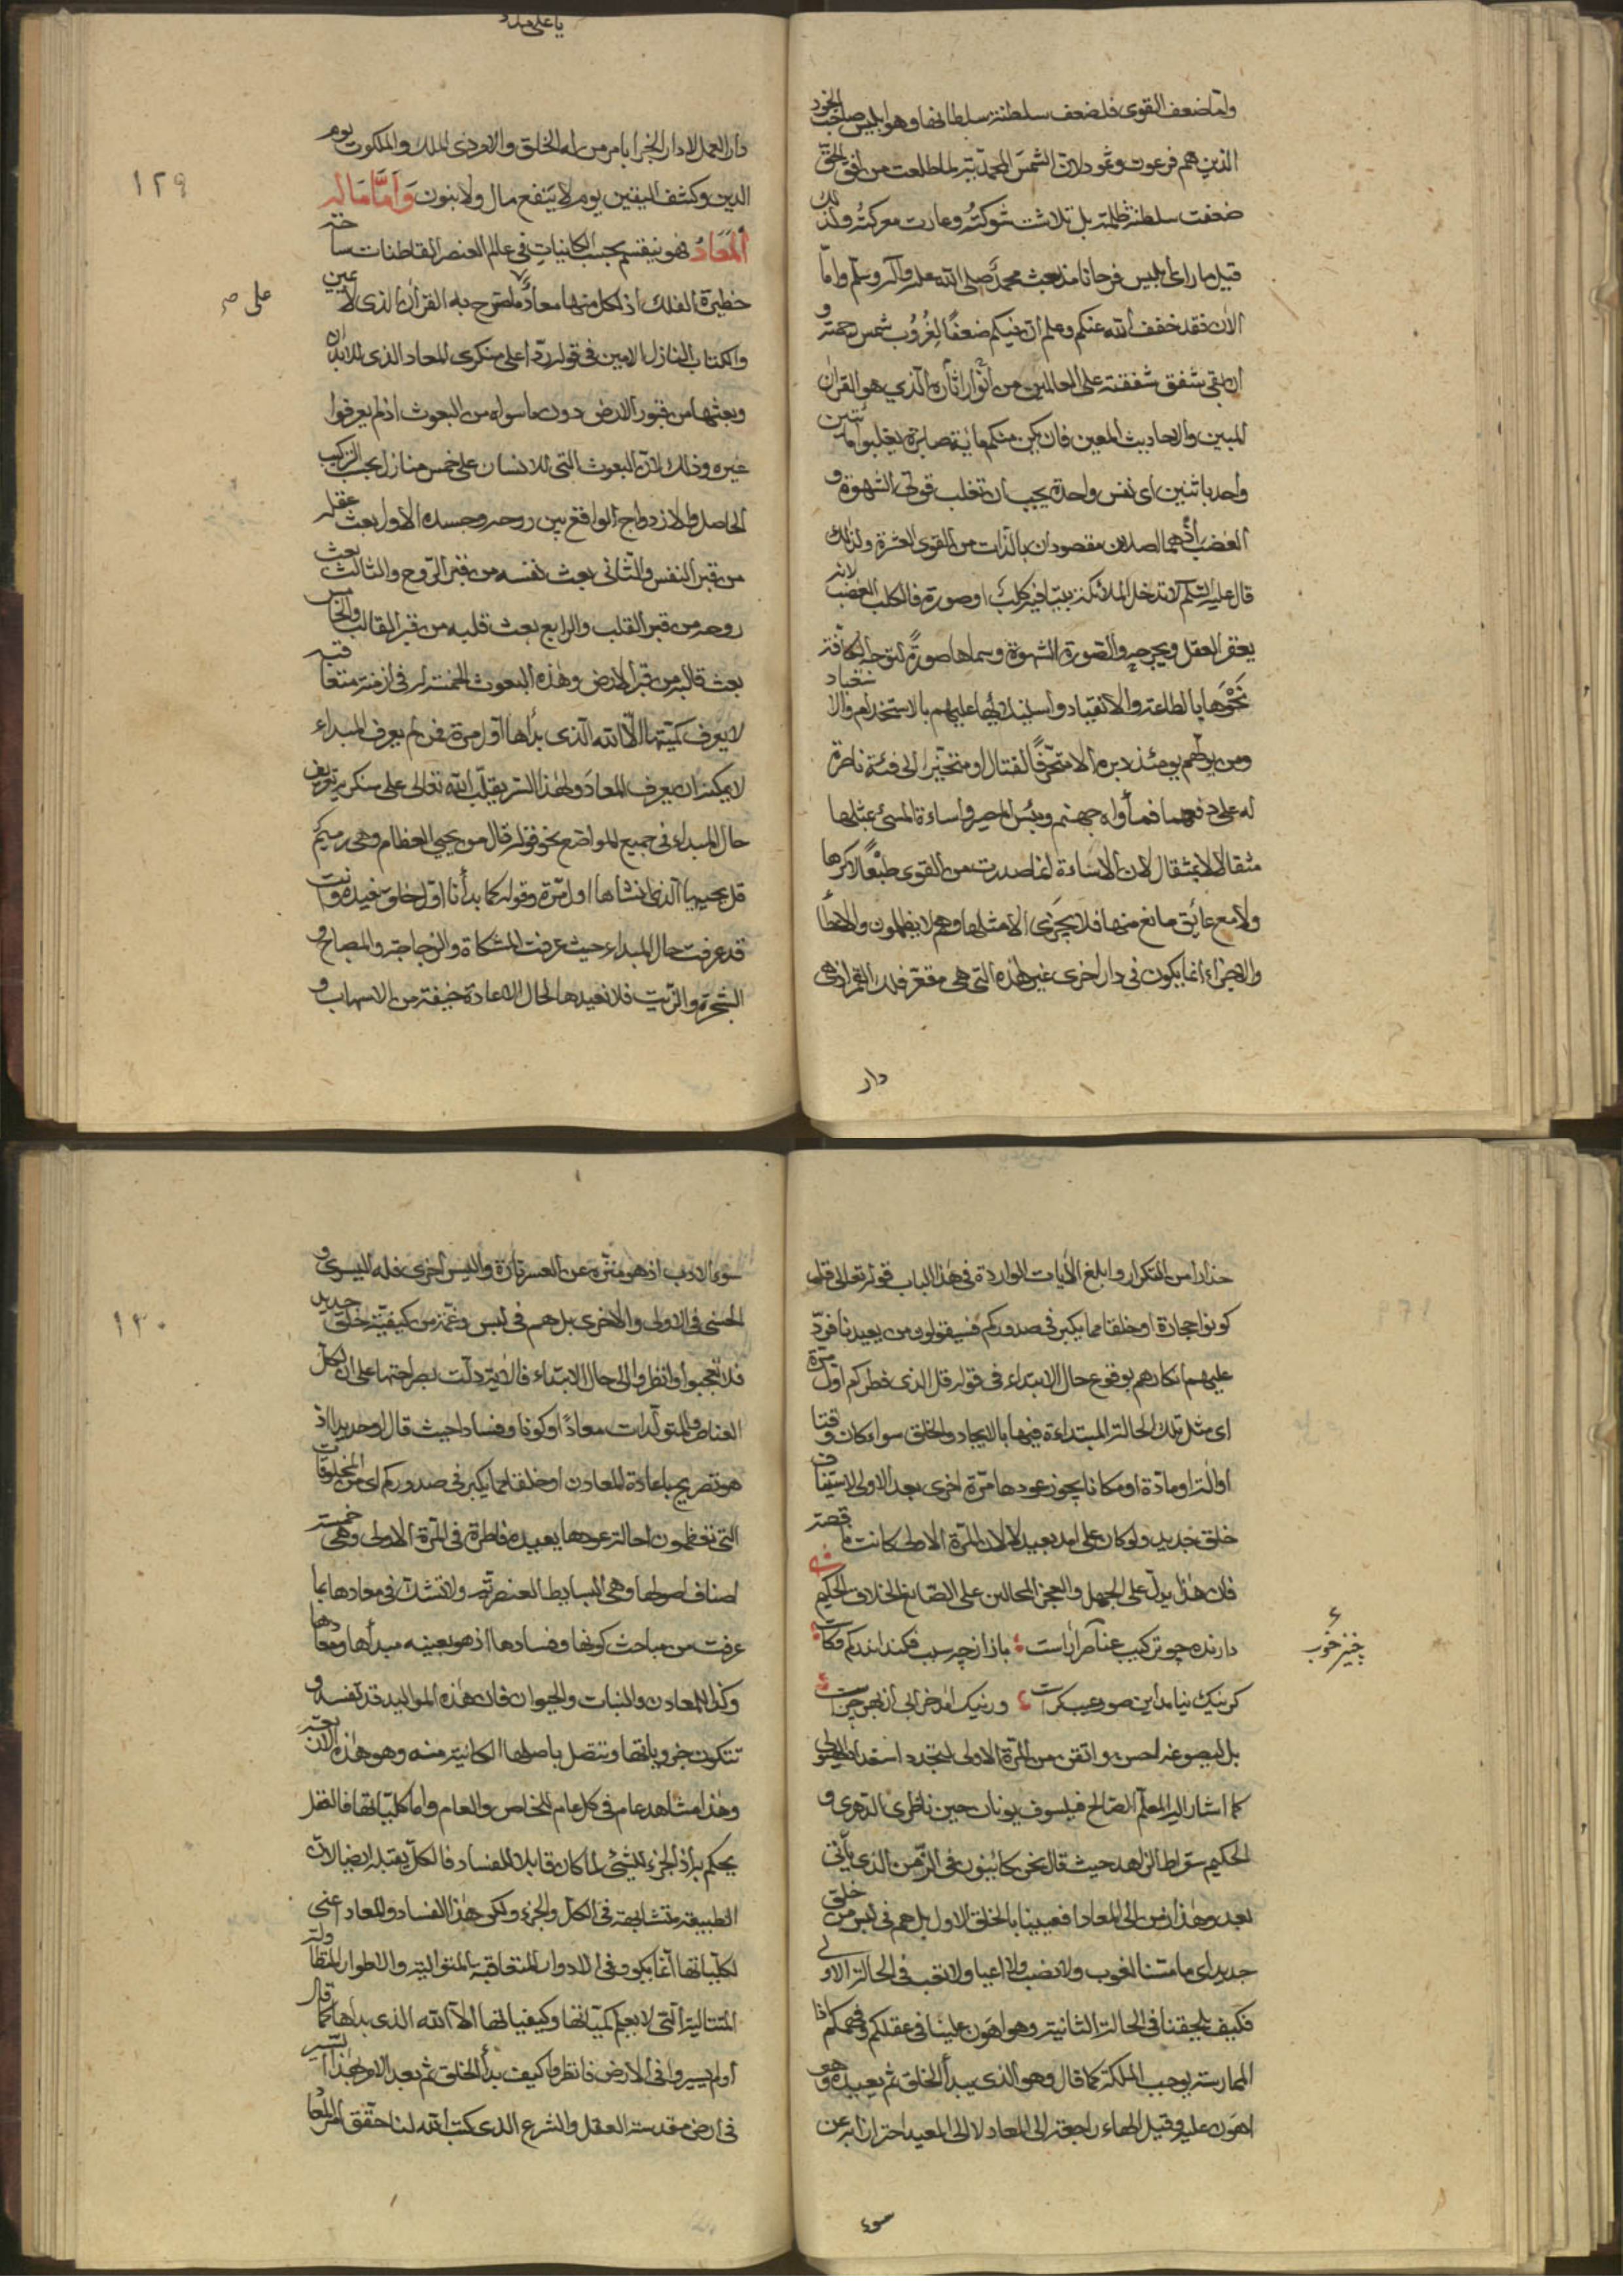 واما ضعف القوى فلضعف سلطنة سلطانها وهو ابليس صاحب الجنود
الذين هم فرعون وثمود لان الشمس المحمدية لما طلعت من افق الحق
ضعفت سلطنة ظلمته بل تلاشت شوكته وعارت معركته ولذلك
قيل ما راى ابليس فرحانا منذ بعث محمد صلى الله عليه وآله وسلم واما
الان فقد خفف الله عنكم وعلم ان فيكم ضعفا لغروب شمس رحمته و
ان بقى شفق شفقته على العالمين من انوار اثاره الذي هو القران
المبين والاحاديث المعين فان يكن منكم مائة صابرة يغلبوا مائتين
واحد باثنين اى نفس واحدة يجب ان تغلب قوتى الشهوة و
الغضب اذ هما اصلان مقصودان بالذات من القوى العشرة ولذلك
قال عليه السلم لا تدخل الملائكة بيتا فيه كلب او صورة فالكلب الغضب لانه
يعقر العقل ويجرحه والصورة الشهوة وسماها صورة لتوجه الكافة
نحوها بالطاعة والانقياد واستيلائها عليهم بالاستخدام والاستعباد
ومن يولهم يومئذ دبره الا متحرفا لقتال او متحيزا الى فئة ناصرة
له على دفعهما فمأواه جهنم وبئس المصير واساءة المسئ بمثلها
مثقالا بمثقال لان الاساءة انما صدرت من القوى طبعا لا كرها
ولا مع عائق مانع منها فلا يجزى الا مثلها وهم لا يظلمون والاعطاء
والاجزاء انما يكون فى دار اخرى غير هذه التى هى مقعر فلك القمر اذ هى
دار
يا على مدد
دار العمل لا دار الجزا يا من من له الخلق والامر ذى الملك والملكوت يوم
الدين وكشف اليقين يوم لا ينفع مال ولا بنون وَاَمَّا مَاله
المَعَادُ فهو ينقسم بحسب الكاينات فى عالم العنصر القاطنات ساحة
حظيرة الفلك اذ لكل منها معاد ما صرح به القران الذى لا عين
والكتاب النازل الامين فى قوله ردا على منكرى المعاد الذى للابدان
وبعثها من قبور الارض دون ما سواه من البعوث اذ لم يعرفوا
غيره وذلك لان البعوث التى للانسان على خمس منازل بحسب التركيب
الحاصل والازدواج الواقع بين روحه وجسده الاول بعث عقله
من قبر النفس والثانى بعث نفسه من قبر الروح والثالث بعث
روحه من قبر القلب والرابع بعث قلبه من قبر القالب والخامس
بعث قالبه من قبر الارض وهذه البعوث الخمسة له فى ازمنة متعاقبة
لا يعرف كميتها الا الله الذى بدأها اول مرة فمن لم يعرف المبداء
لا يمكنه ان يعرف المعاد ولهذا السر يقلب الله تعالى على منكريه تعريف
حال المبداء فى جميع المواضع نحو قوله قال من يحيى العظام وهى رميم
قل يحييها الذى انشاها اول مرة وقوله كما بدأنا اول خلق نعيده وانت
قد عرفت حال المبداء حيث عرفت المشكاة والزجاجة والمصباح و
الشجرة والزيت فلا نعيدها لحال الاعادة خيفة من الاسهاب و
١٢٩
على صم
حذارا من التكرار وابلغ الآيات الواردة فى هذا الباب قوله تعالى قل
كونوا حجارة او خلقا مما يكبر فى صدوركم فسيقولون من يعيدنا فرد
عليهم انكارهم بوقوع حال الابتداء فى قوله قل الذى فطركم اول مرة
اى مثل تلك الحالة المبتداءة فيها بالايجاد والخلق سواء كان وقتا
او الة او مادة او مكانا يجوز عودها مرة اخرى بعد الاولى لاستيناف
خلق جديد ولو كان على امد بعيد لا لان المرة الاولى كانت ناقصة
فان هذا يدل على الجهل والعجز المحالين على الصانع الخلاق الحكيم
دارنده چو تركيب عناصر آراست باز از چه سبب فكند اندر كم وكاست
كر نيك نيامد اين صور عيب كراست ور نيك امد خرابى از بهر چراست
بل ليصوغه احسن واتقن من المرة الاولى لتجدد استعداد الهيولى
كما اشار اليه المعلم الصالح فيلسوف يونان حين ناظره الدهرى و
الحكيم سقراط الزاهد حيث قال نحن كائنون فى الزمن الذى يأتى
بعد وهذا رمز الى المعاد افعيينا بالخلق الاول بل هم فى لبس من خلق
جديد اى ما مسنا لغوب ولا نصب ولا اعيا ولا تعب فى الحالة الاولى
فكيف يلحقنا فى الحالة الثانية وهو اهون علينا فى عقلكم وفهمكم اذا
الممارسة يوجب الملكة كما قال وهو الذى يبدأ الخلق ثم يعيده وهو
اهون عليه وقيل الهاء راجعة الى المعاد لا الى المعيد احترازا به عن
سوء
چيز خوب
سوء الادب اذ هو منزه عن العسر تارة واليسر اخرى فله اليسرى و
الحسنى فى الاولى والاخرى بل هم فى لبس وغمة من كيفية خلق جديد
فلا تعجبوا وانظروا الى حال الابتداء فالاية دلت بصراحتها على ان لكل
العناصر والمتولدات معادا وكونا وفسادا حيث قال او حديدا اذ
هو تصريح باعادة المعادن او خلقا مما يكبر فى صدوركم اى من المخلوقات
التى تعظمون احالة عودها يعيده فاطره فى المرة الاولى وهى خمسة
اصناف اصولها وهى البسايط العنصرية ولا تشك فى معادها بما
عرفت من مباحث كونها وفسادها اذ هو بعينه مبدأها ومعادها
وكذا المعادن والنبات والحيوان فان هذه المواليد قد تفسد و
تتكون جزوياتها وتتصل باصولها الكائنة منه وهو هذه الاربعة
وهذا مشاهد عام فى كل عام للخاص والعام واما كلياتها فالعقل
يحكم بان الجزء الشئى لما كان قابلا للفساد فالكل يقبله ايضا لان
الطبيعة متشابهة فى الكل والجزء ولكن هذا الفساد والمعاد اعنى
لكلياتها انما يكون فى الادوار المتعاقبة المتوالية والاطوار المتطاولة
المتتالية التى لا يعلم كمياتها وكيفياتها الا الله الذى بدأها كما قال
اولم يسيروا فى الارض فانظروا كيف بدأ الخلق ثم بعد الامر بهذا السير
فى ارض مقدسة العقل والشرع الذى كتب الله لنا حقق امر المعاد
١٣٠